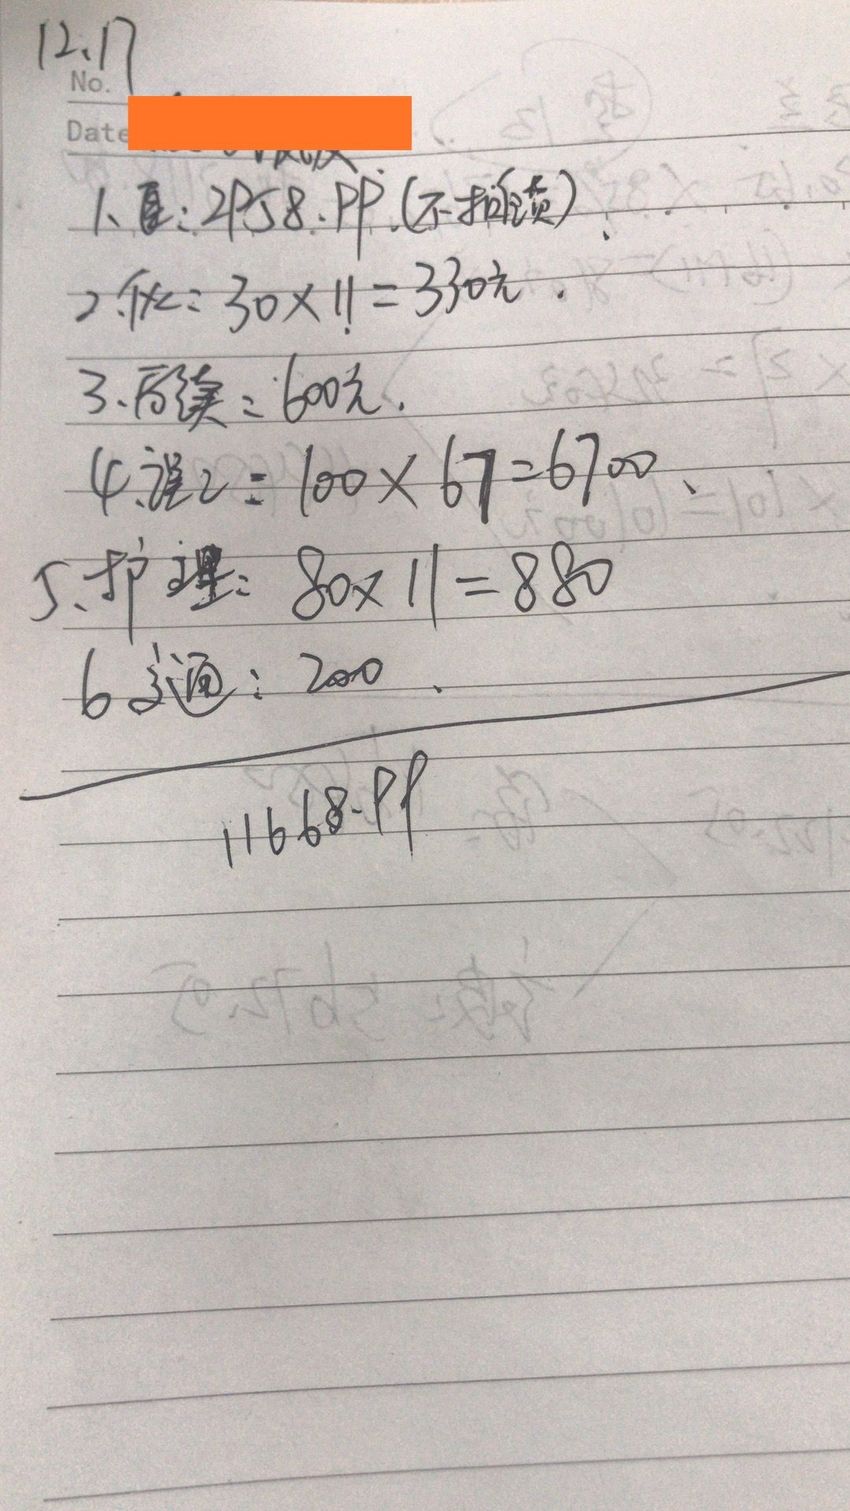 12.17
No.
Date
1、医:2958.99.(不扣
2、伙:30×11=330元.
3、后续:600元.
4、误工:100×67=6700、
5、护理:80×11=880
6 交通:200.
11668.99